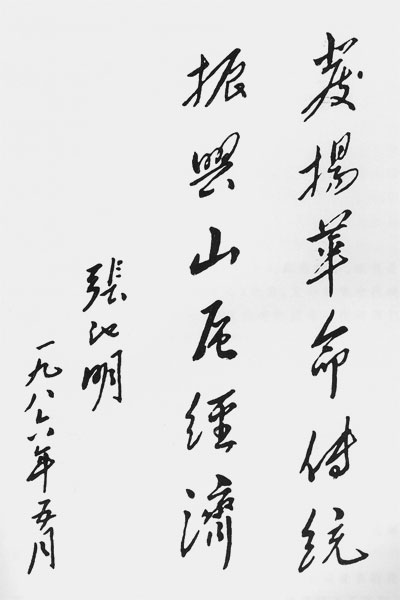 發揚革命傳統
振興山區經濟
張池明
一九八六年五月